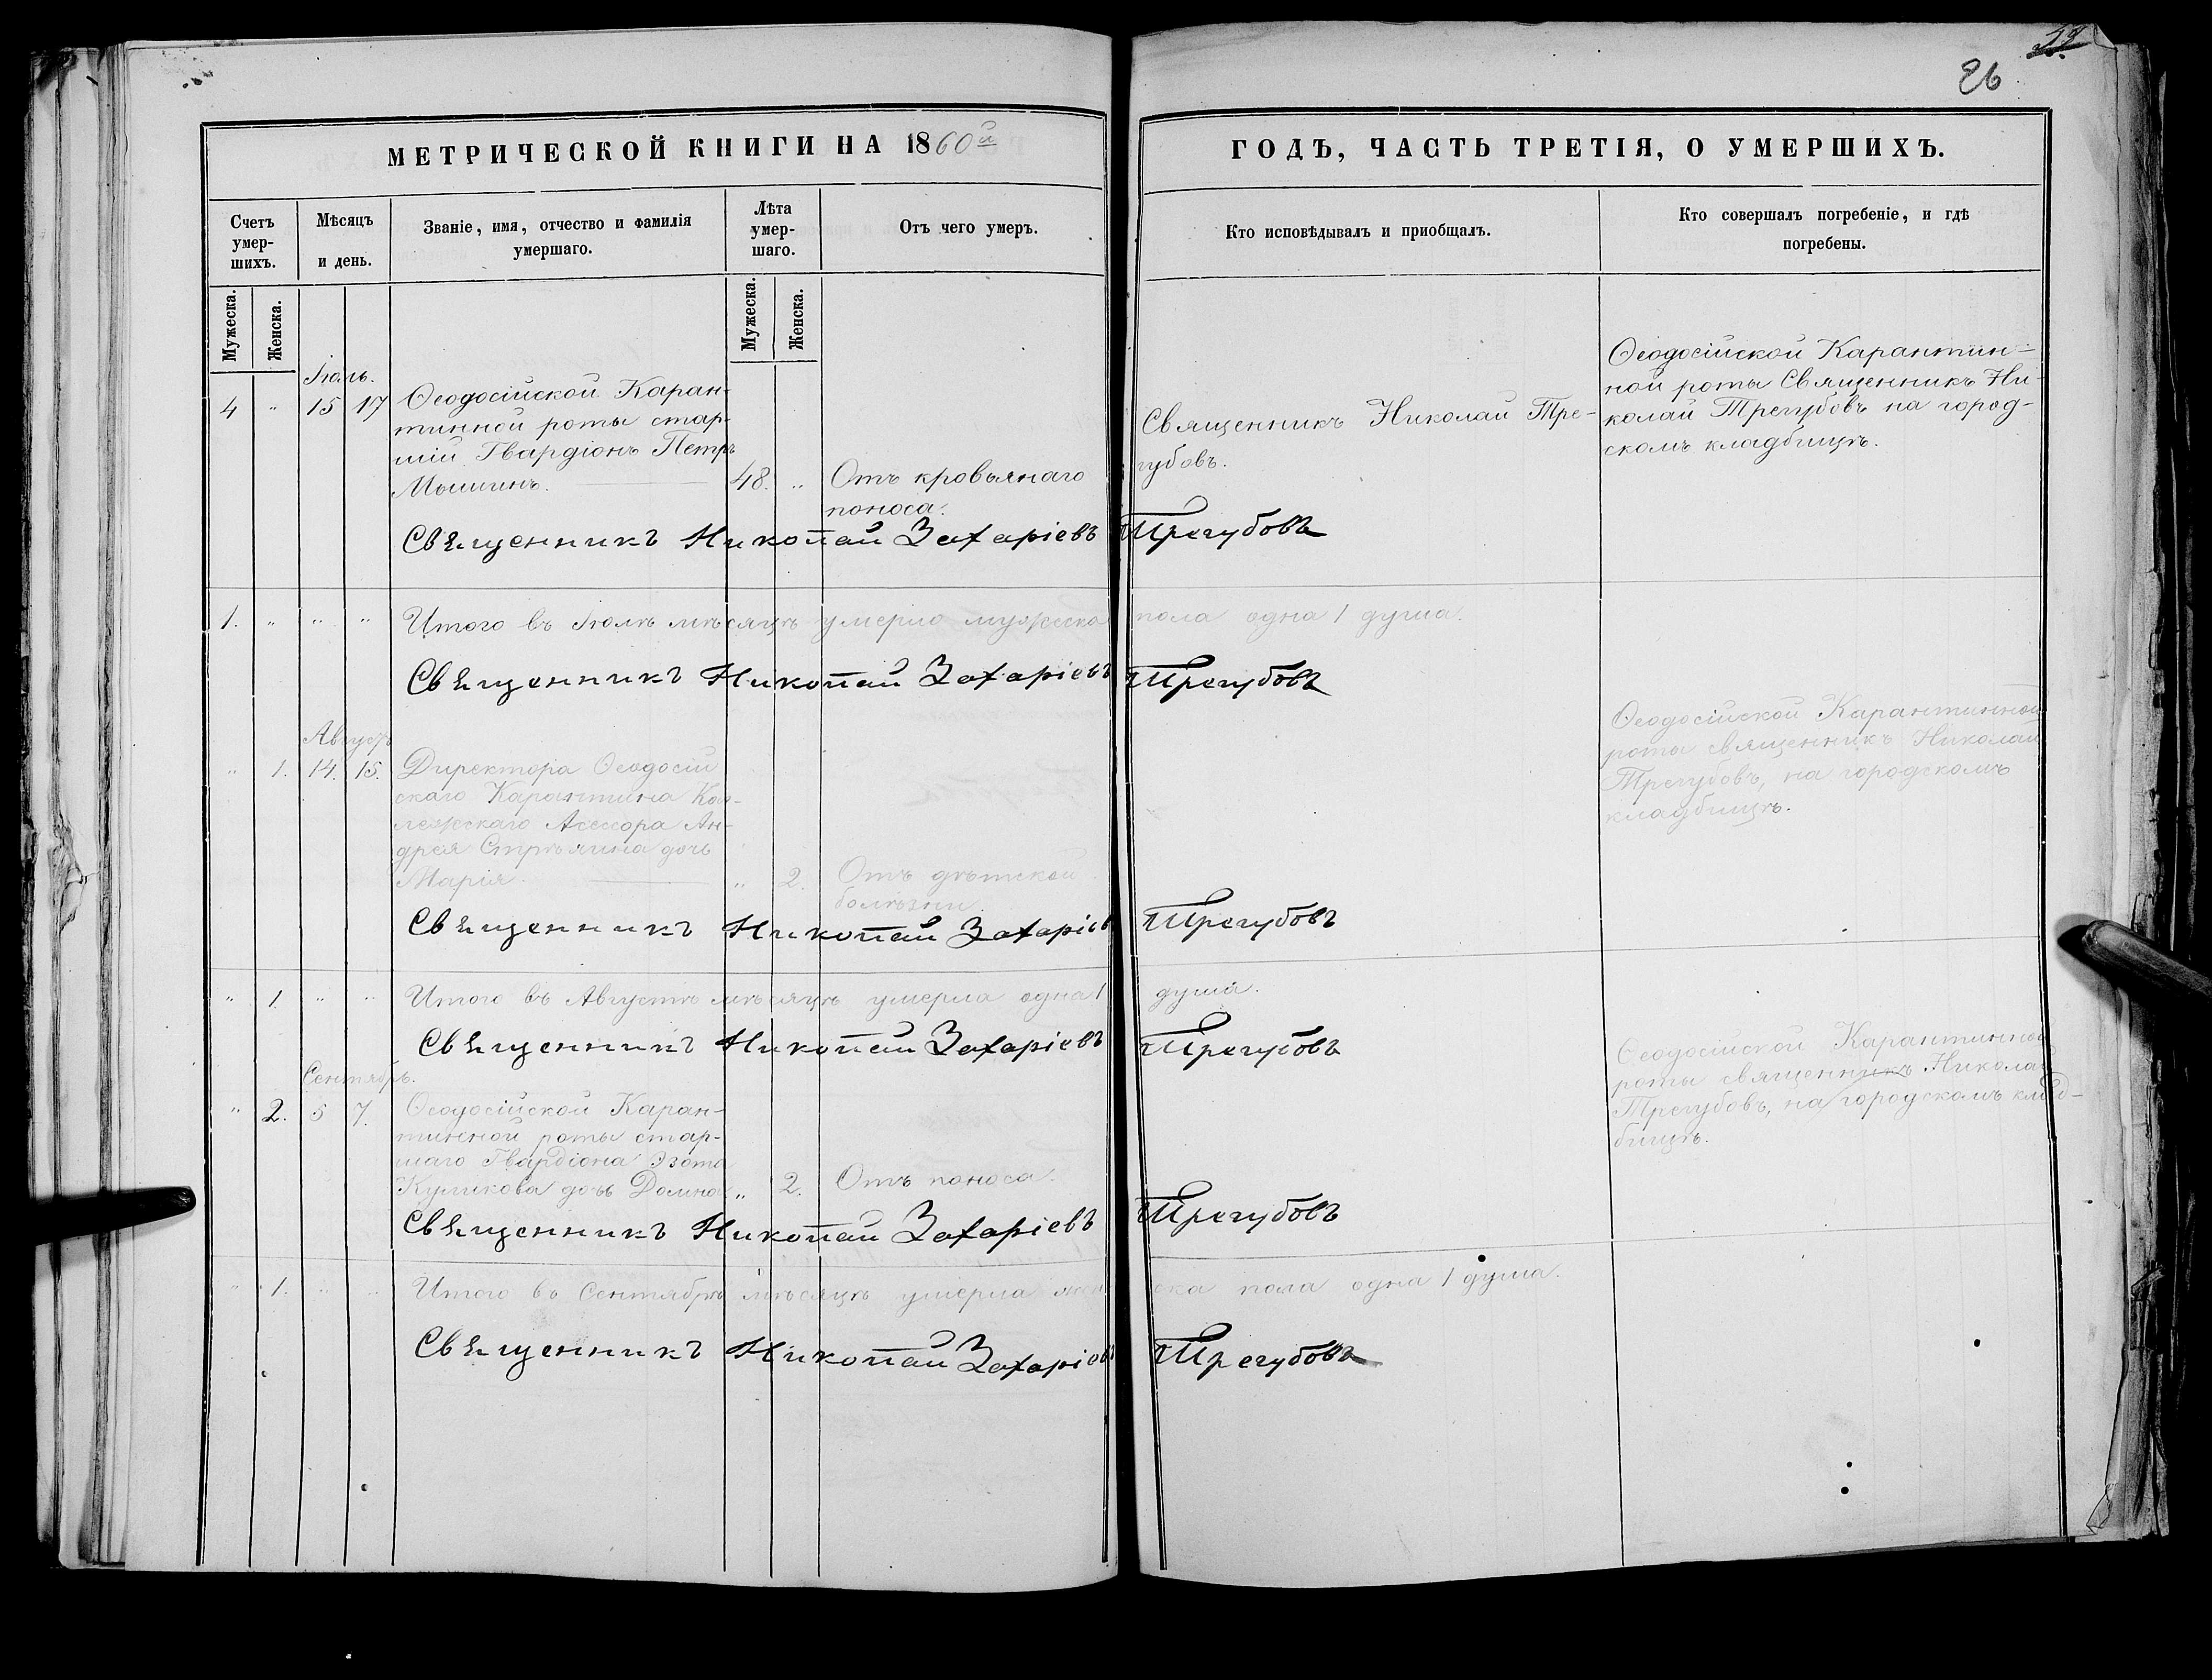 26
МЕТРИЧЕСКОЙ КНИГИ НА 1860й
ГОДЪ, ЧАСТЬ ТРЕТІЯ, О УМЕРШИХЪ.
Счетъ умер-
шихъ.
Мѣсяцъ
и день.
Званіе, имя, отчество и фамилія
умершаго.
Лѣта
умер-
шаго.
Отъ чего умеръ.
Кто исповѣдывалъ и приобщалъ.
Кто совершалъ погребеніе, и гдѣ
погребены.
Мужеска.
Женска.
Мужеска.
Женска.
Іюль.
4 " 15 17 Ѳеодосійской Каран-
тинной роты стар-
шій Гвардіонъ Петръ
Мошинъ. 48. " Отъ кровянаго
поноса.
Священникъ Николай Тре-
губовъ.
Ѳеодосійской Карантин-
ной роты Священникъ Ни-
колай Трегубовъ на город-
скомъ кладбищѣ.
Священникъ Николай Захаріевъ Трегубовъ
1. " " " Итого въ Іюлѣ мѣсяцѣ умерло мужеска пола одна 1 душа.
Священникъ Николай Захаріевъ Трегубовъ
Августъ
" 1. 14. 15. Директора Ѳеодосій
скаго Карантина Кол-
лежскаго Асессора Ан-
дрея Стрѣлина дочь
Марія. " 2. Отъ дѣтской
болѣзни.
Ѳеодосійской Карантинной
роты священникъ Николай
Трегубовъ, на городскомъ
кладбищѣ.
Священникъ Николай Захаріев Трегубовъ
" 1. " " Итого въ Августѣ мѣсяцѣ умерла одна 1 душа.
Священникъ Николай Захаріевъ Трегубовъ
Сентябрь.
" 2. 5 7. Ѳеодосійской Каран-
тинной роты стар-
шаго Гвардіона Изота
Куликова дочь Домна " 2. Отъ поноса.
Ѳеодосійской Карантинной
роты священникъ Николай
Трегубовъ, на городскомъ клад-
бищѣ.
Священникъ Николай Захаріевъ Трегубовъ
" 1. " " Итого въ Сентябрѣ мѣсяцѣ умерла женска пола одна 1 душа.
Священникъ Николай Захаріевъ Трегубовъ